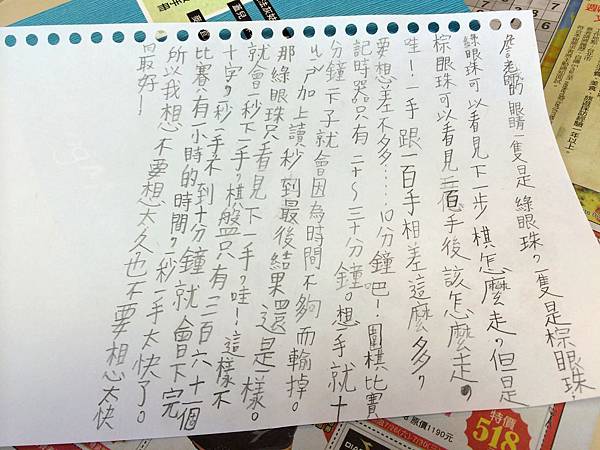 詹老師的眼睛一隻是綠眼珠,一隻是棕眼珠,
綠眼珠可以看見下一步棋怎麼走,但是
棕眼珠可以看見三百手後該怎麼走。
哇!一手跟一百手相差這麼多,
要想差不多……10分鐘吧!圍棋比賽
記時器只有二十~三十分鐘。想一手就十
分鐘一下子就會因為時間不夠而輸掉。
加上讀秒到最後結果還是一樣。
那綠眼珠只看見下一手,哇!這樣不
就會一秒下一手,棋盤只有三百六十一個
十字,一秒一手不到十分鐘就會下完
比賽有一小時的時間,一秒一手太快了。
所以我想不要想太久也不要想太快
最好!
特價
518
原價1190元